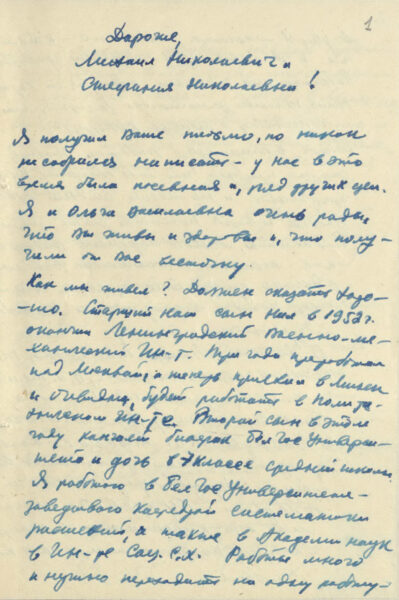 1
Дорогие,
Михаил Николаевич и
Стефания Николаевна!
Я получил Ваше письмо, но никак
не собрался написать – у нас в это
время была посевная и, ряд других
Я и Ольга Васильевна очень рады,
что Вы живы и здоровы и, что полу-
чили от Вас весточку.
Как мы живем? Должен сказать хоро-
-шо. Старший наш сын Иля в 1952 г.
окончил Ленинградский Военно-ме-
ханический Ин-т. Три года проработал
под Москвой, а теперь приехал в Минск
и очевидно, будет работать в Полите-
хническом Ин-те. Второй сын в этом
году кончает биофак БелГосУниверси-
тета и дочь в 7 классе средней школы
Я работаю в БелГосУниверситете –
заведываю кафедрой систематики
растений, а также в Академии наук
в Ин-те Соц. С.Х. Работы много
и нужно переходить на одну работу-